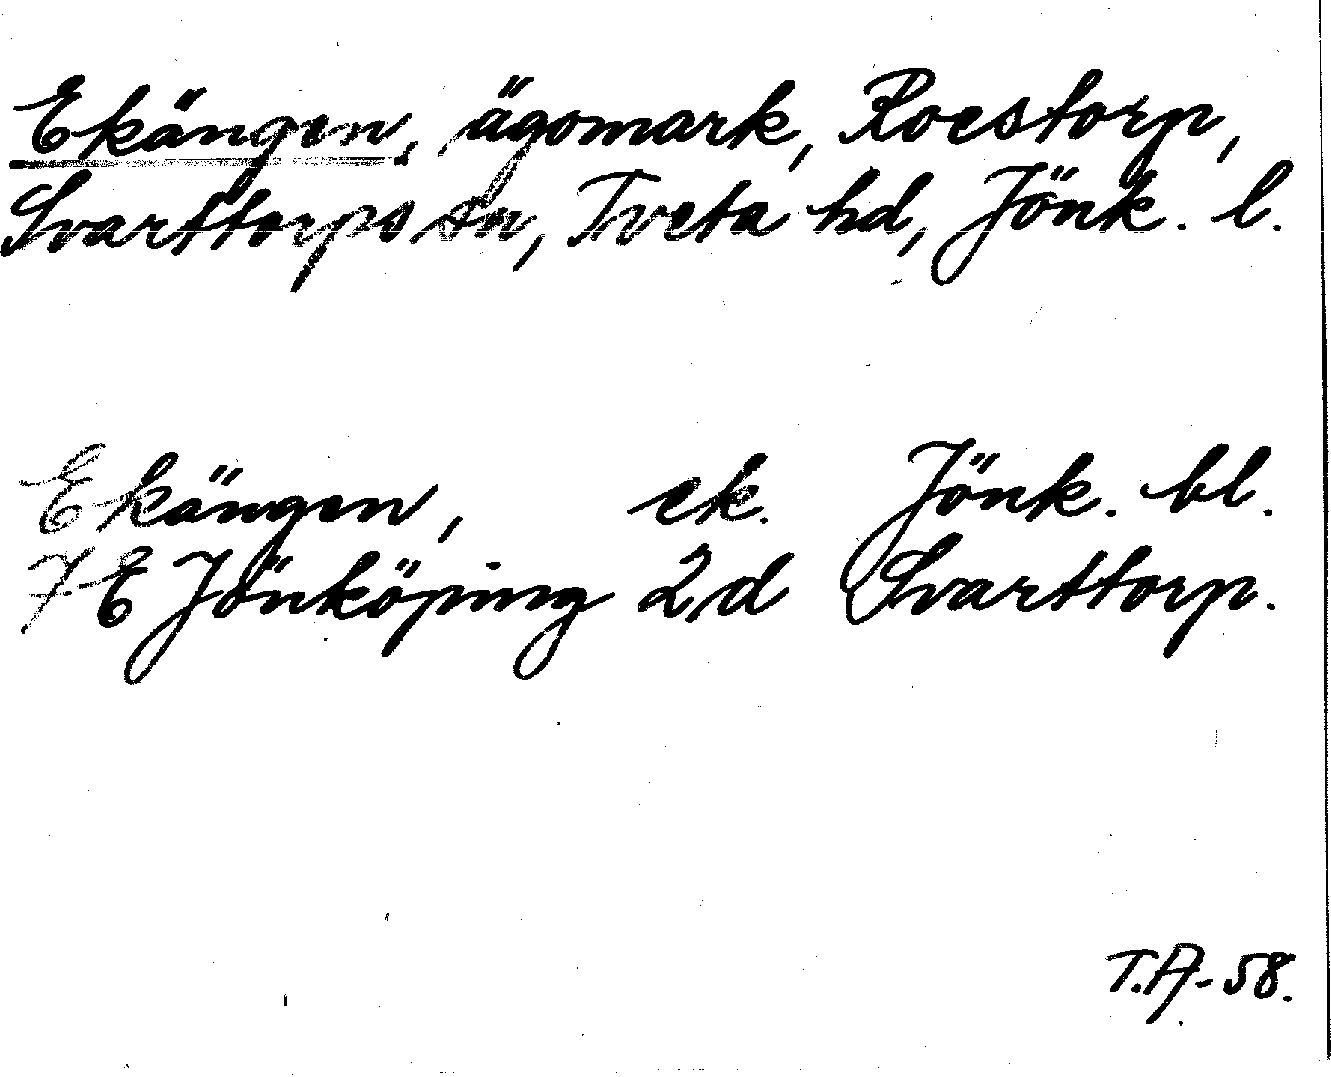 Ekängen, ägomark, Roestorp,
Svarttorps sn, Tveta hd, Jönk. l.
Ekängen, ek. Jönk. bl.
7E Jönköping 2d Svarttorp.
T.A-58.